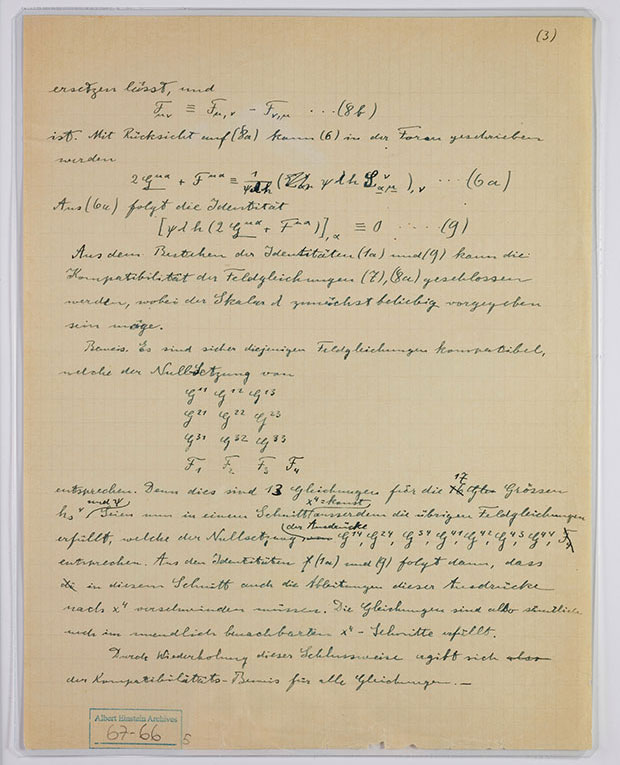 (3)
ersetzen lässt, und
F_μν ≡ F_μ,ν - F_ν,μ ...(8b)
ist. Mit Rücksicht auf (8a) kann (6) in der Form geschrieben
werden
2 G^μα + F^μα ≡ 1/ψλh ( ψλh ),ν ...(6a)
Aus (6a) folgt die Identität
[ψλh(2 G^μα + F^μα)],α ≡ 0 ...(9)
Aus dem Bestehen der Identitäten (1a) und (9) kann die
Kompatibilität der Feldgleichungen (7), (8a) geschlossen
werden, wobei der Skalar λ zunächst beliebig vorgegeben
sein möge.
Beweis. Es sind sicher diejenigen Feldgleichungen kompatibel,
welche der Nullsetzung von
G^11 G^12 G^13
G^21 G^22 G^23
G^31 G^32 G^33
F_1 F_2 F_3 F_4
entsprechen. Denn dies sind 13 Gleichungen für die 17 Grössen
h_s^ν und ψ. Seien nun in einem Schnitt x^4 = konst ausserdem die übrigen Feldgleichungen
erfüllt, welche der Nullsetzung der Ausdrücke G^14, G^24, G^34, G^41, G^42, G^43, G^44
entsprechen. Aus den Identitäten (1a) und (9) folgt dann, dass
in diesem Schnitt auch die Ableitungen dieser Ausdrücke
nach x^4 verschwinden müssen. Die Gleichungen sind also sämtlich
auch im unendlich benachbarten x^4-Schnitte erfüllt.
Durch Wiederholung dieser Schlussweise ergibt sich also
der Kompatibilitäts-Beweis für alle Gleichungen. —
Albert Einstein Archives
67-66
5